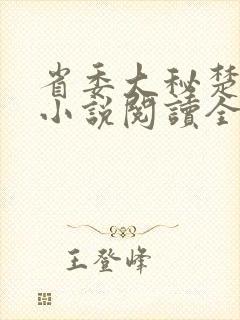 省委大秘楚
小说閱讀全
王登峰